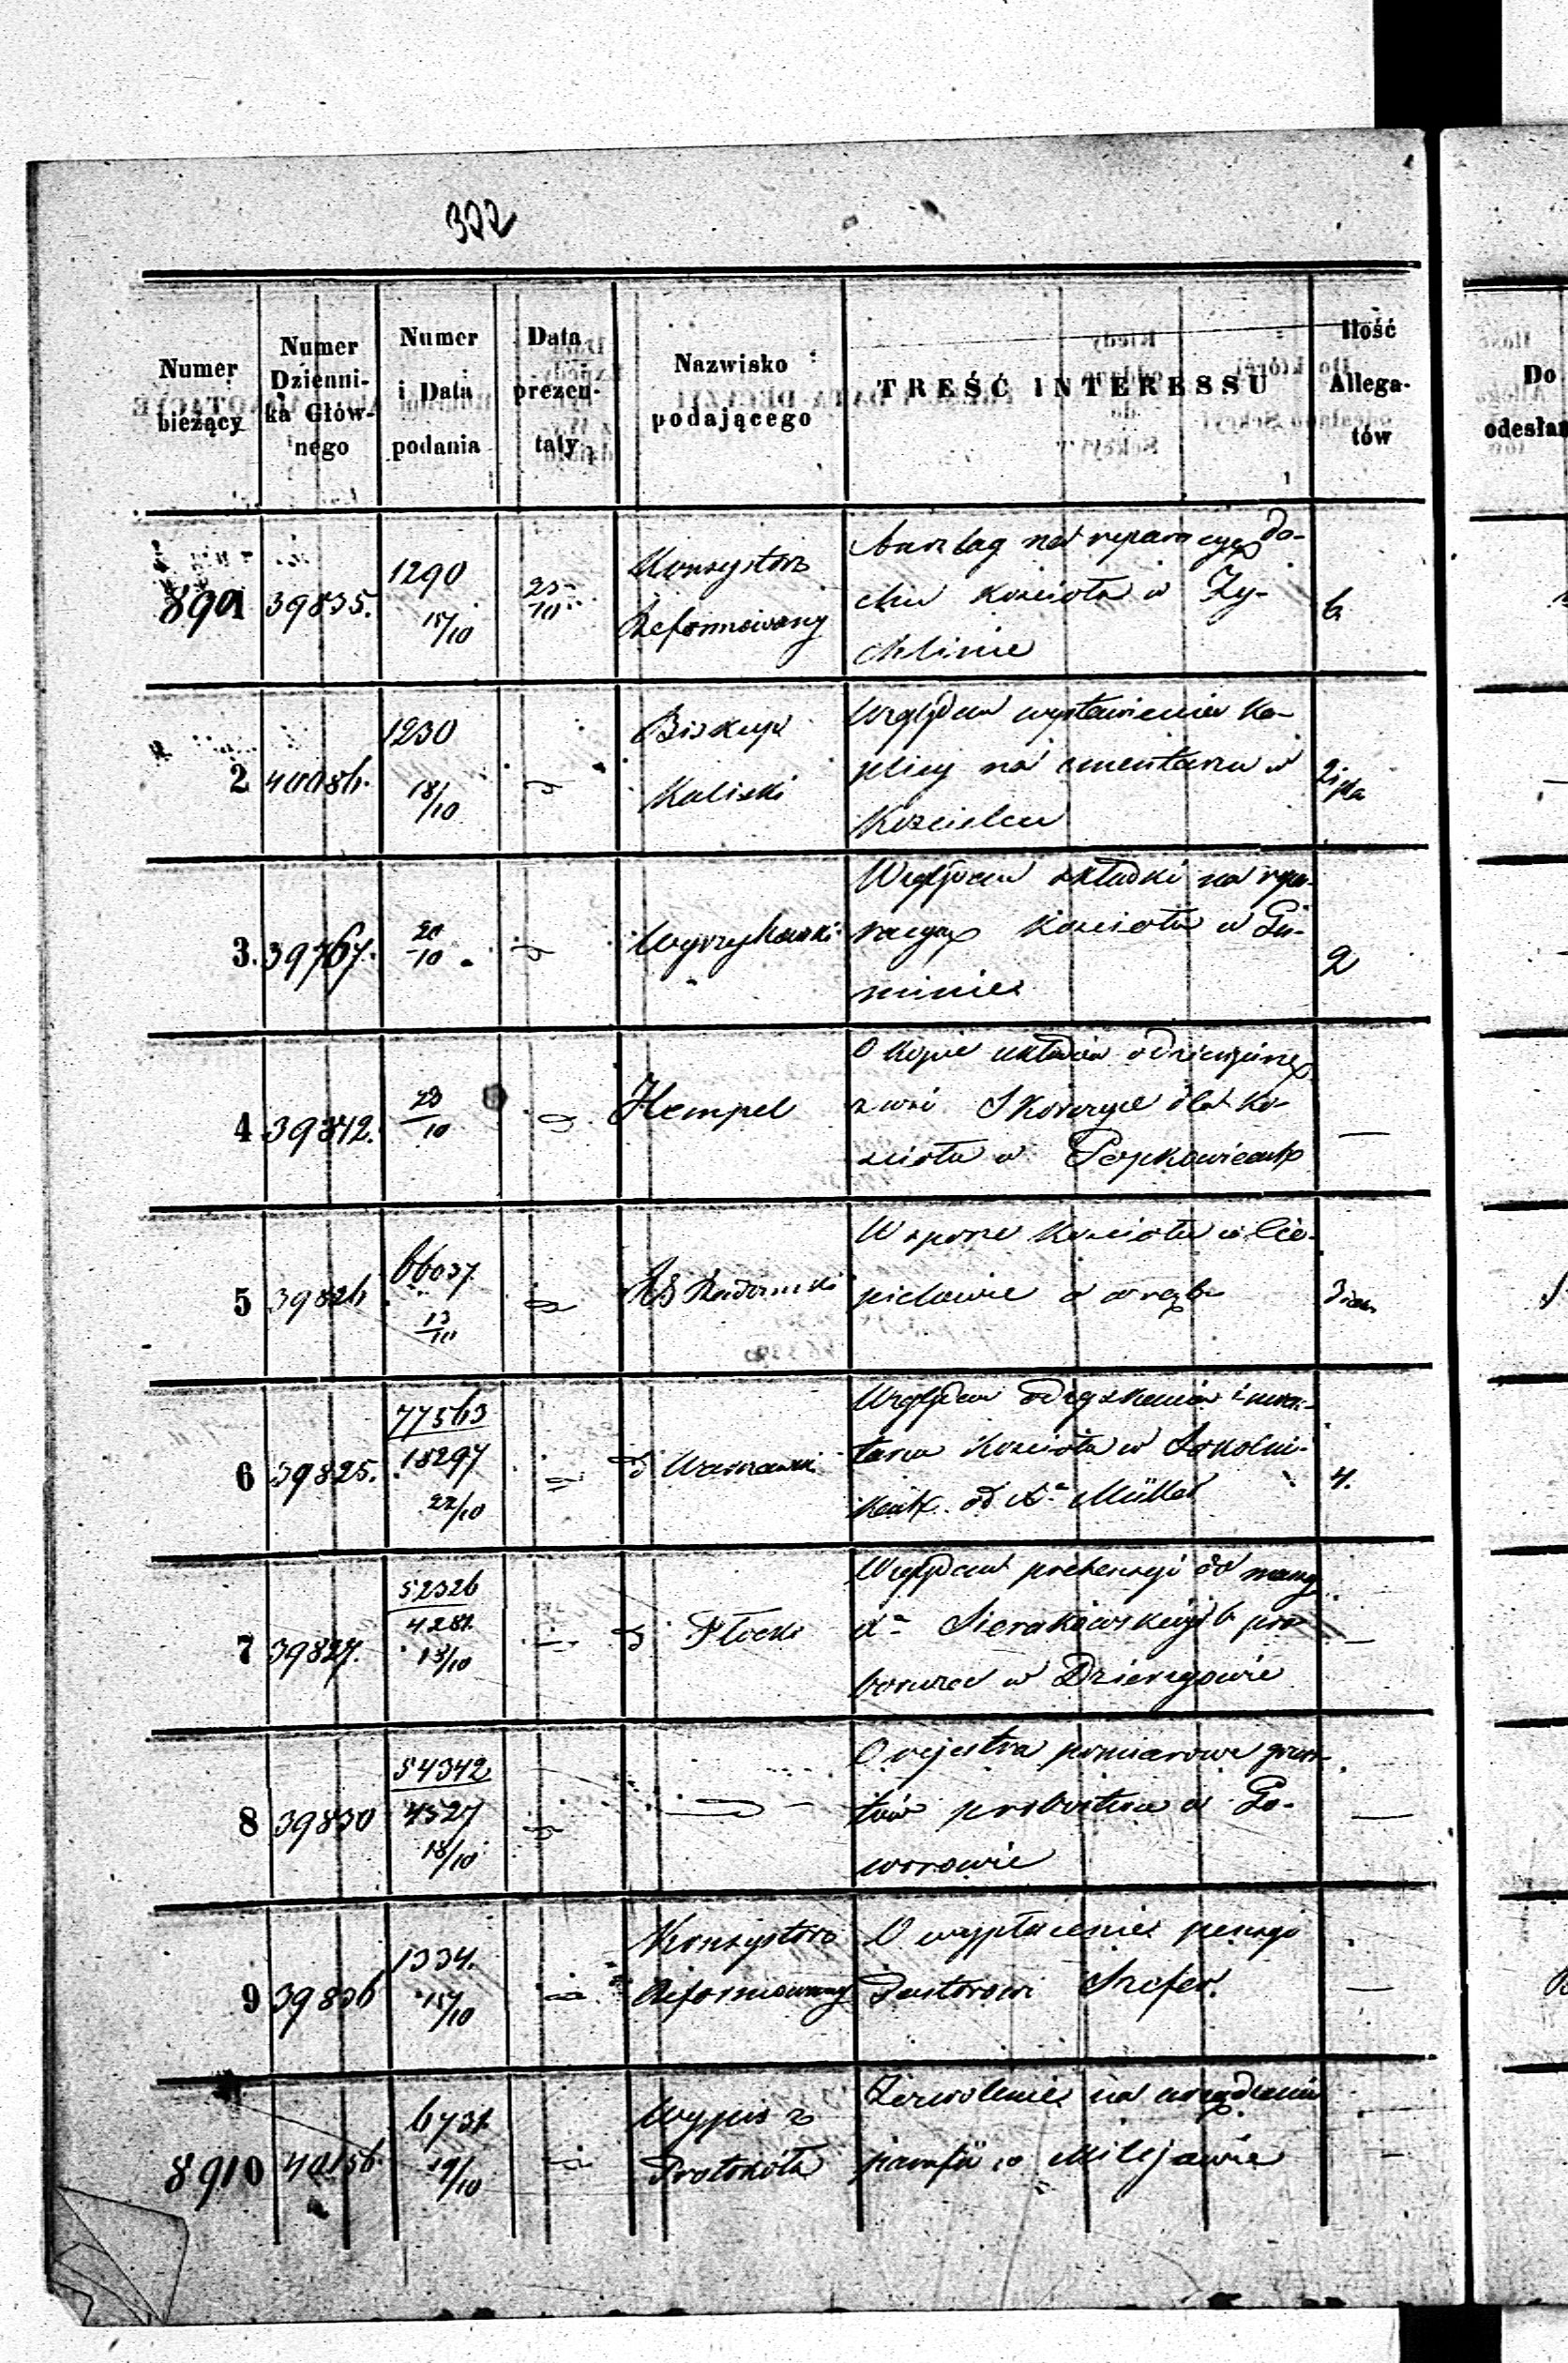 322
Numer bieżący
Numer Dzienni-ka Głów-nego
Numer i Data podania
Data prezen-taty
Nazwisko podającego
TREŚĆ INTERESSU
Ilość Allega-tów
Do
odesłan
8901 39835. 1290 15/10 25/10 Konsystorz Reformowany
Anszlag na reparacyę da-
chu kościoła w Ży-
chlinie
6
2 40086. 1230 18/10 Biskup Kaliski
Względem wystawienia ka-
plicy na cmentarzu w
Kościelcu
3. 39767. 20/10
Względem składki na repa-
racyę kościoła w Gó-
2
4 39842. 23/10 Hempel
O kopie układu
z wsi dla ko-
ścioła w Popkowicach
—
5 39826 66037 13/10 Radomski
W sporze Kościoła w Cie-
pielowie o wręb
6 39825. 77563 18297 22/10 Warszawski
Względem odzyskania inwen-
tarza kościoła w Sokolni-
kach od Xa Müller
4.
7 39827. 52326 4281 18/10 Płocki
Względem pretensyi do massy
Xa Sierakowskiego b. pro-
boszcza w Dzierzgowie
—
8 39830 54342 4527 18/10
O rejestra pomiarowe grun-
tów probostwa w Go-
worowie
—
9 39836 1334. 15/10 Konsystorz Reformowany
O wypłacenie pensyi
Pastorowi Szefer.
—
8910 40156. 6731 19/10 Wypis z Protokółu
Zezwolenie na urządzenie
parafii w Milejowie
—